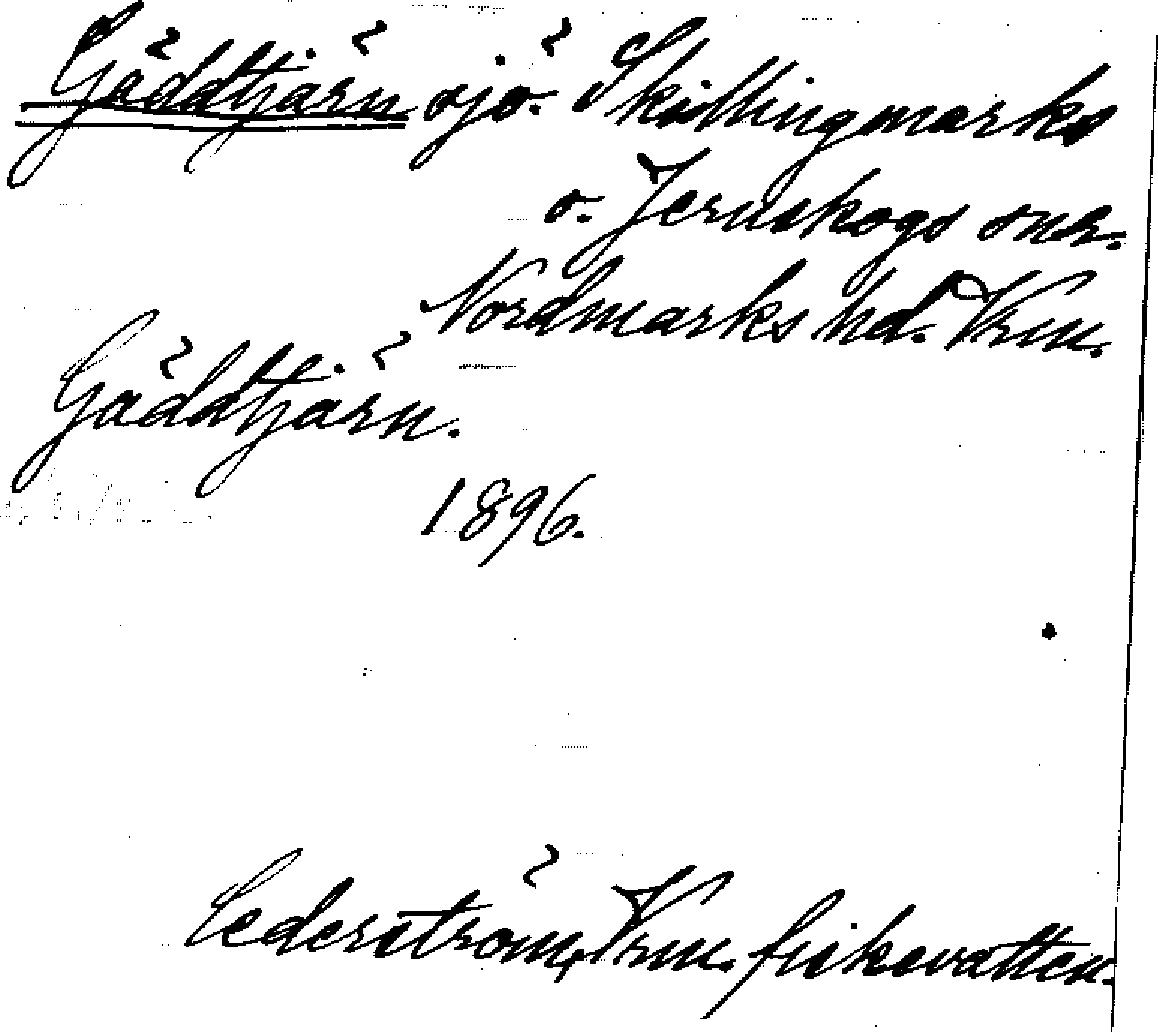 Gäddtjärn sjö. Skillingmarks
o. Jernskogs snr.
Nordmarks hd. Vrm.
Gäddtjärn.
1896.
Cederström, Vrm. fiskevatten.